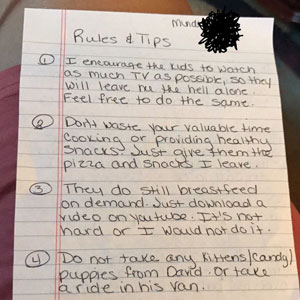 Rules & Tips
① I encourage the kids to watch
as much TV as possible, so they
will leave me the hell alone.
Feel free to do the same.
② Don't waste your valuable time
cooking or providing healthy
snacks. Just give them the
pizza and snacks I leave.
③ They do still breastfeed
on demand. Just download a
video on youtube. It's not
hard or I would not do it.
④ Do not take any kittens/candy/
puppies from David. Or take
a ride in his van.